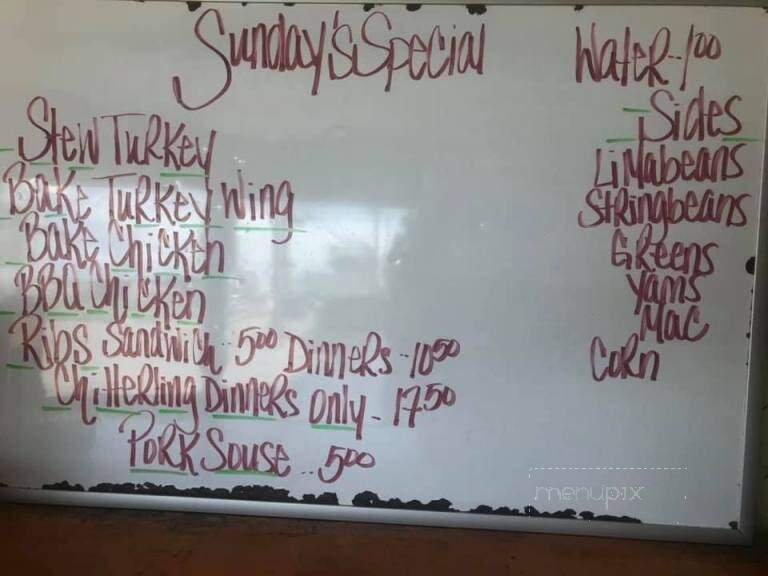 Sunday's Special
Water--1.00
Sides
Stew Turkey
Bake Turkey Wing
Bake Chicken
BBQ Chicken
Ribs Sandwich--5.00 Dinners--10.50
Chitterling Dinners Only-17.50
Pork Souse--5.00
Limabeans
Stringbeans
Greens
Yams
Mac
Corn
menupix